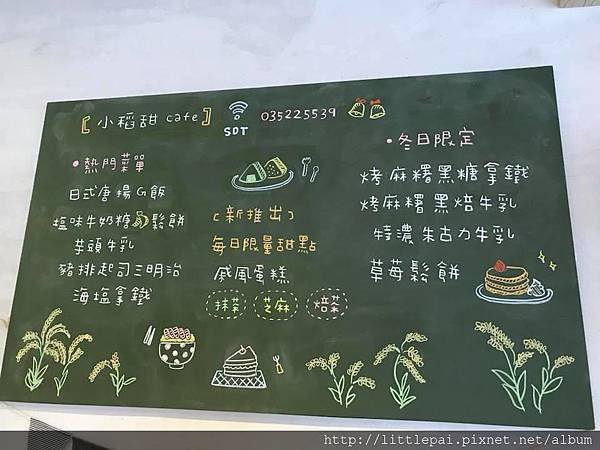 [小稻甜 cafe]
SDT
035225539
•熱門菜單
日式唐揚G飯
塩味牛奶糖鬆餅
芋頭牛乳
豬排起司三明治
海塩拿鐵
[新推出]
每日限量甜點
戚風蛋糕
抹茶 芝麻 焙茶
•冬日限定
烤麻糬黑糖拿鐵
烤麻糬黑焙牛乳
特濃朱古力牛乳
草莓鬆餅
http://littlepai.pixnet.net/album